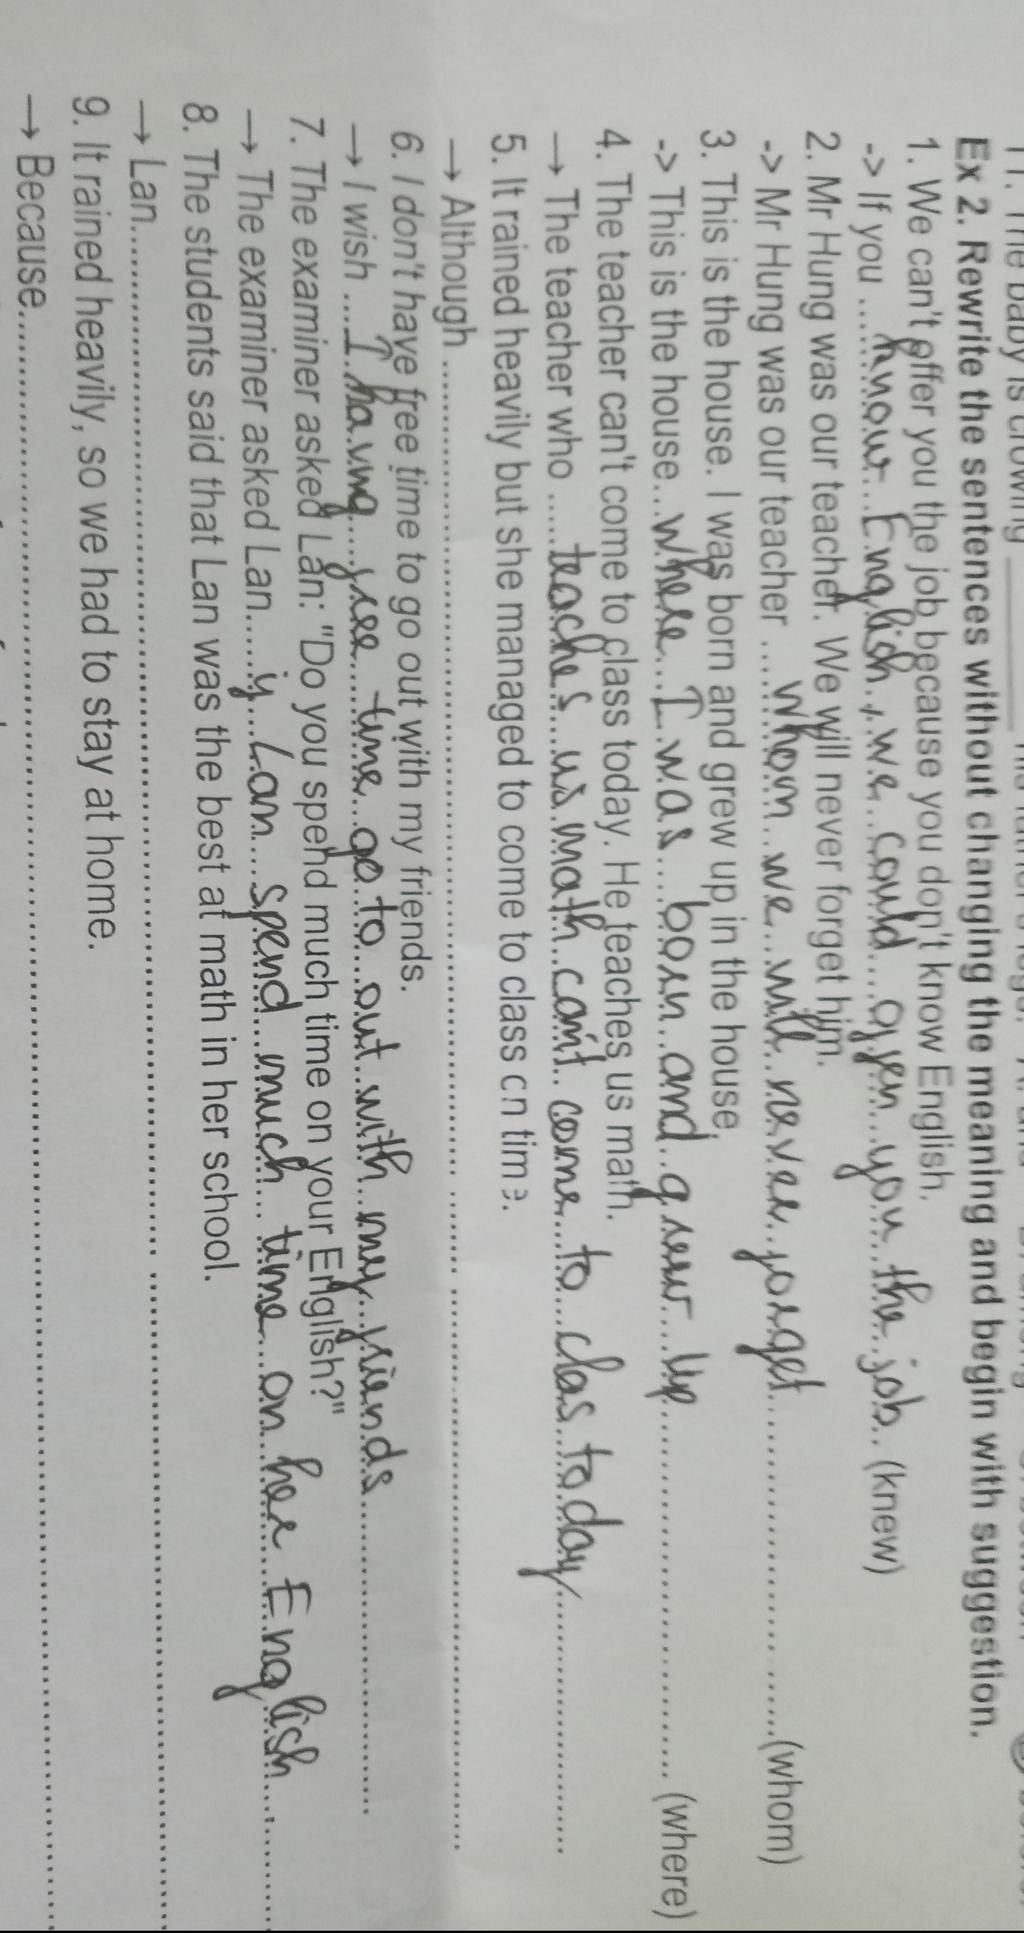 Ex 2. Rewrite the sentences without changing the meaning and begin with suggestion.
1. We can't offer you the job because you don't know English.
-> If you ..... know... English., we.. could.... offen... you... the.. job.. (knew)
2. Mr Hung was our teacher. We will never forget him.
-> Mr Hung was our teacher ....... whom.. we.. will.. never.. forget.................... (whom)
3. This is the house. I was born and grew up in the house.
-> This is the house... where... I was.... born.. and.. grew... up.................... (where)
4. The teacher can't come to class today. He teaches us math.
→ The teacher who ..... teaches... us math.. can't.. come... to.... clas today....................
5. It rained heavily but she managed to come to class on time.
→ Although ............................................................
6. I don't have free time to go out with my friends.
→ I wish .... I having.... free.... time... go to.. out.. with... my.. friends....................
7. The examiner asked Lan: "Do you spend much time on your English?"
→ The examiner asked Lan..... if... Lan.... spend... much... time... on.. her English..........
8. The students said that Lan was the best at math in her school.
→ Lan............................................................
9. It rained heavily, so we had to stay at home.
→ Because............................................................